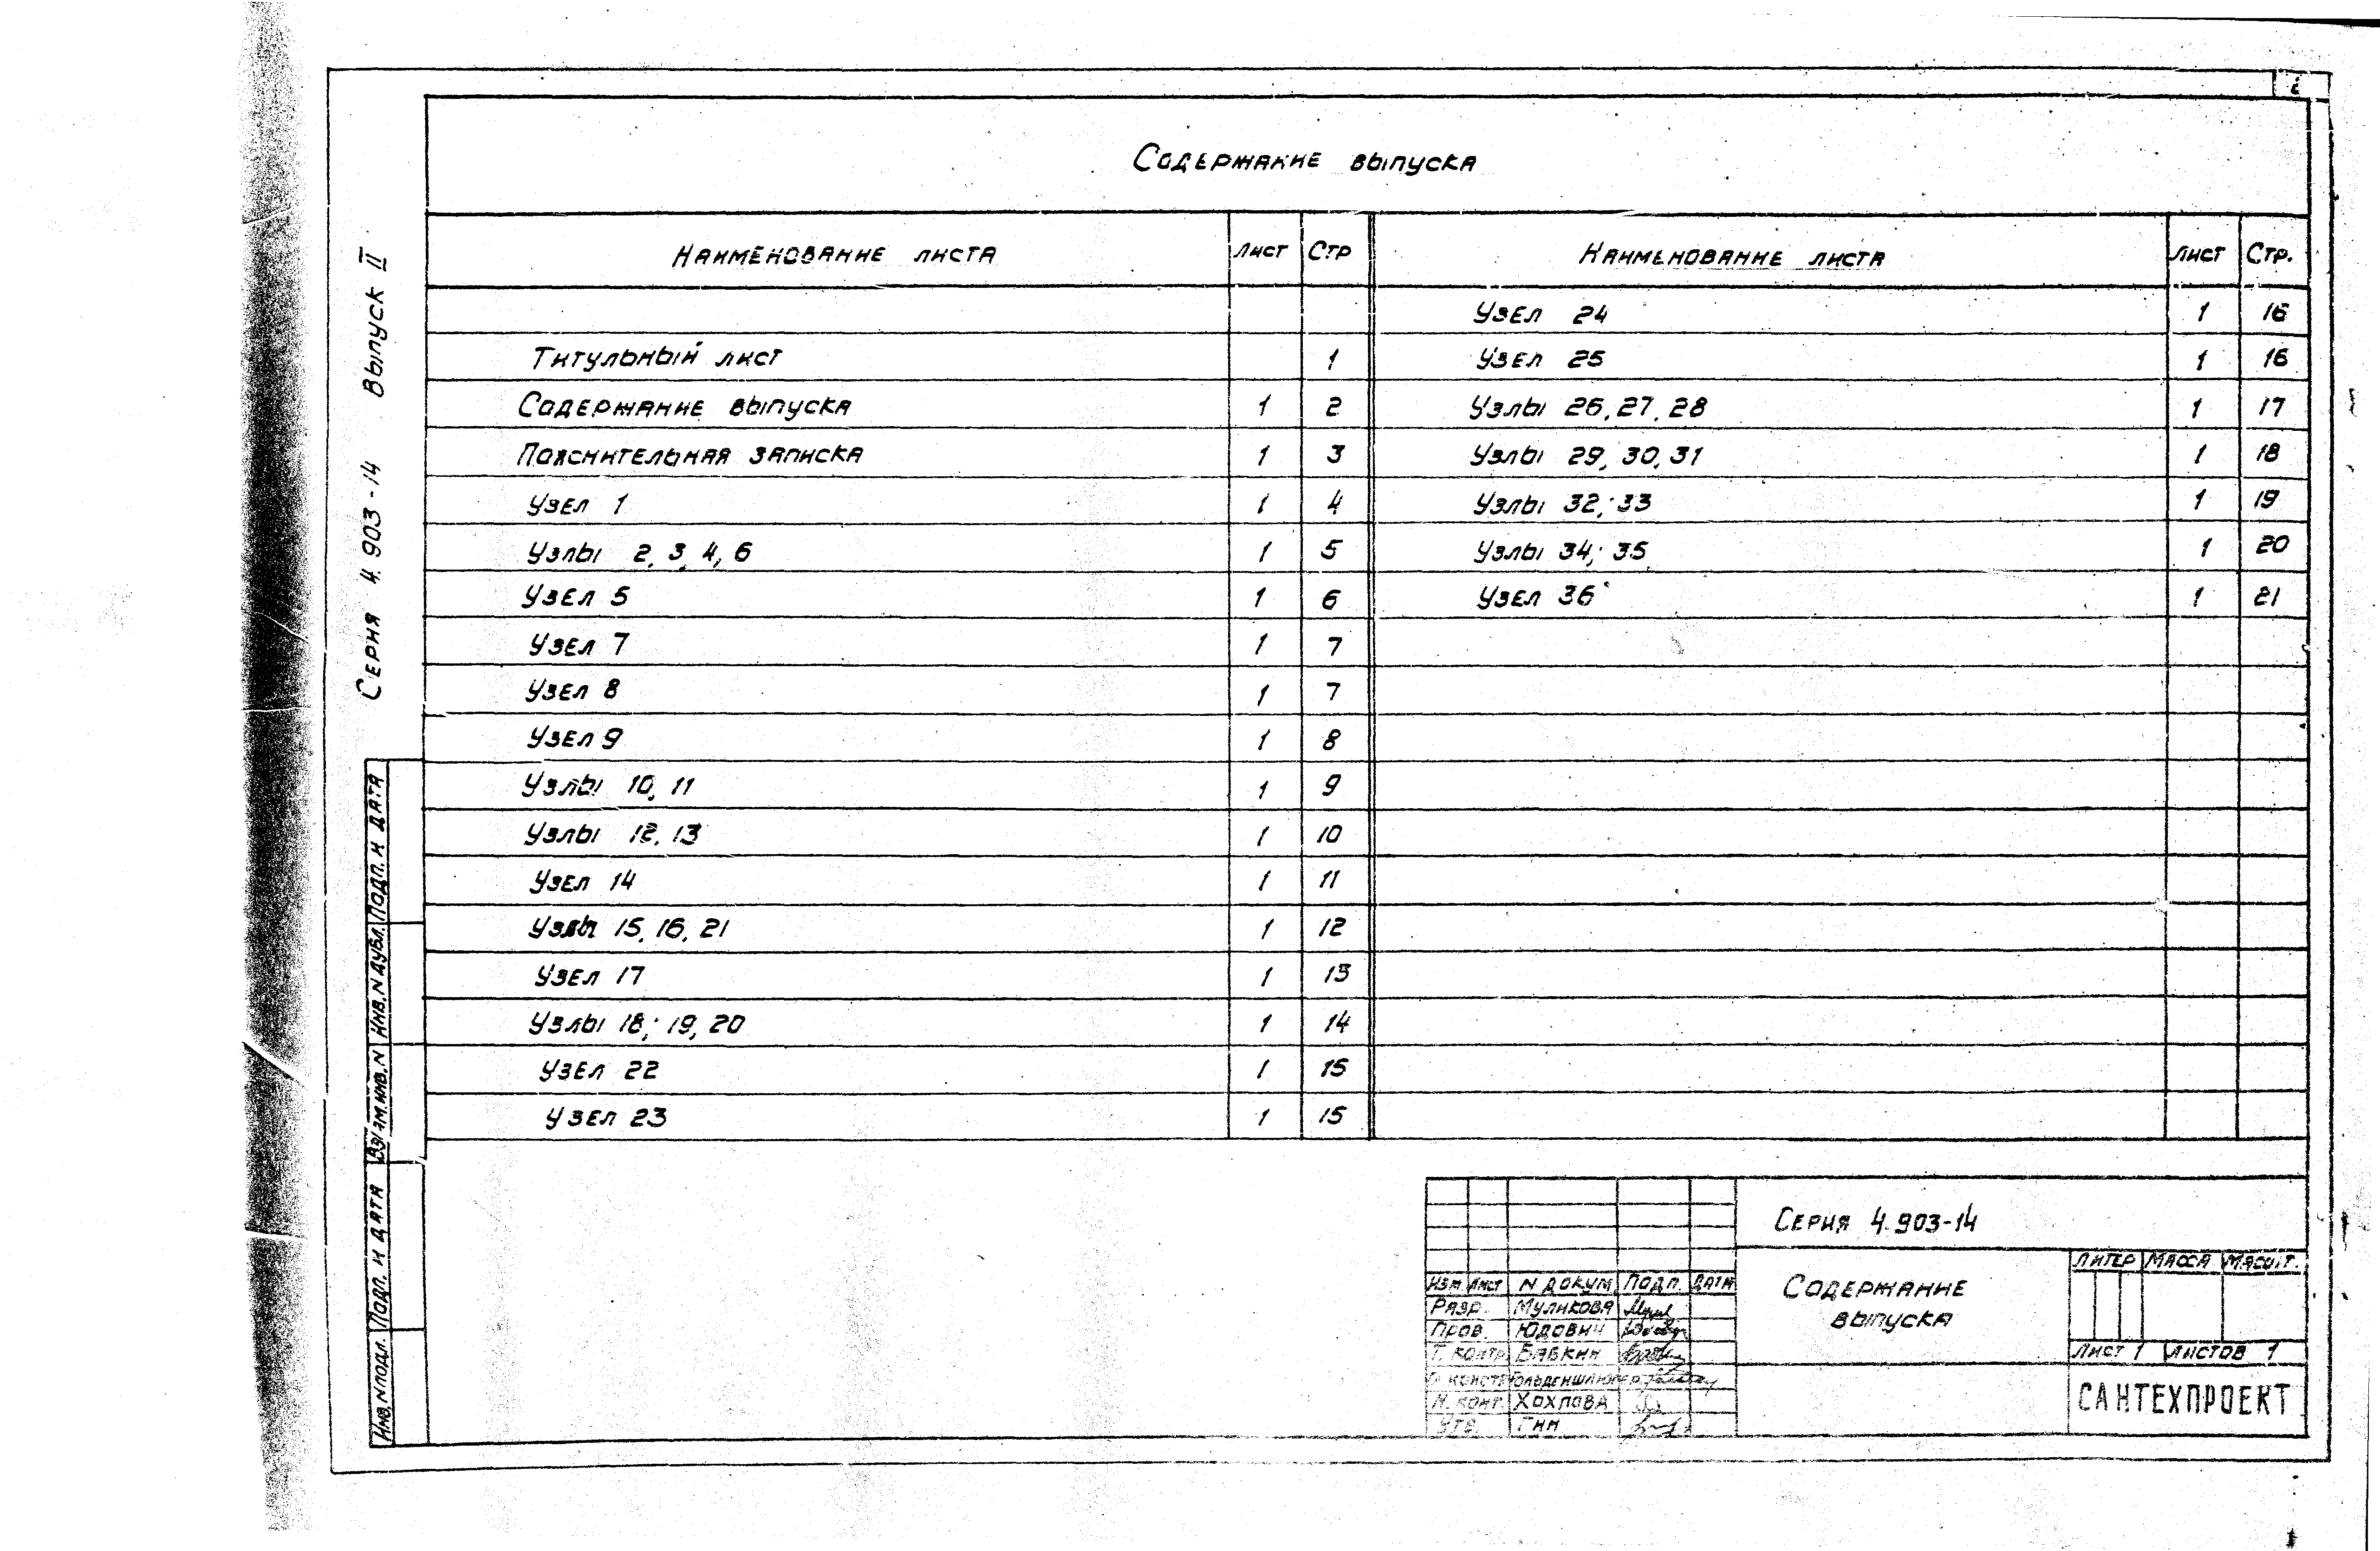 Содержание выпуска
Наименование листа Лист Стр
Титульный лист 1
Содержание выпуска 1 2
Пояснительная записка 1 3
Узел 1 1 4
Узлы 2, 3, 4, 6 1 5
Узел 5 1 6
Узел 7 1 7
Узел 8 1 7
Узел 9 1 8
Узлы 10, 11 1 9
Узлы 12, 13 1 10
Узел 14 1 11
Узлы 15, 16, 21 1 12
Узел 17 1 13
Узлы 18, 19, 20 1 14
Узел 22 1 15
Узел 23 1 15
Наименование листа Лист Стр.
Узел 24 1 16
Узел 25 1 16
Узлы 26, 27, 28 1 17
Узлы 29, 30, 31 1 18
Узлы 32, 33 1 19
Узлы 34, 35 1 20
Узел 36 1 21
Серия 4.903-14 Выпуск II
Подп. и дата
Инв. N дубл.
Взам. инв. N
Подп. и дата
Инв. N подл.
Серия 4.903-14
Содержание
выпуска
Литер Масса Масшт.
Лист 1 Листов 1
САНТЕХПРОЕКТ
Изм Лист N докум Подп. Дата
Разр. Муликова
Пров. Юдович
Т. контр Бабкин
Н. конт. Хохлова
Утв. Гин